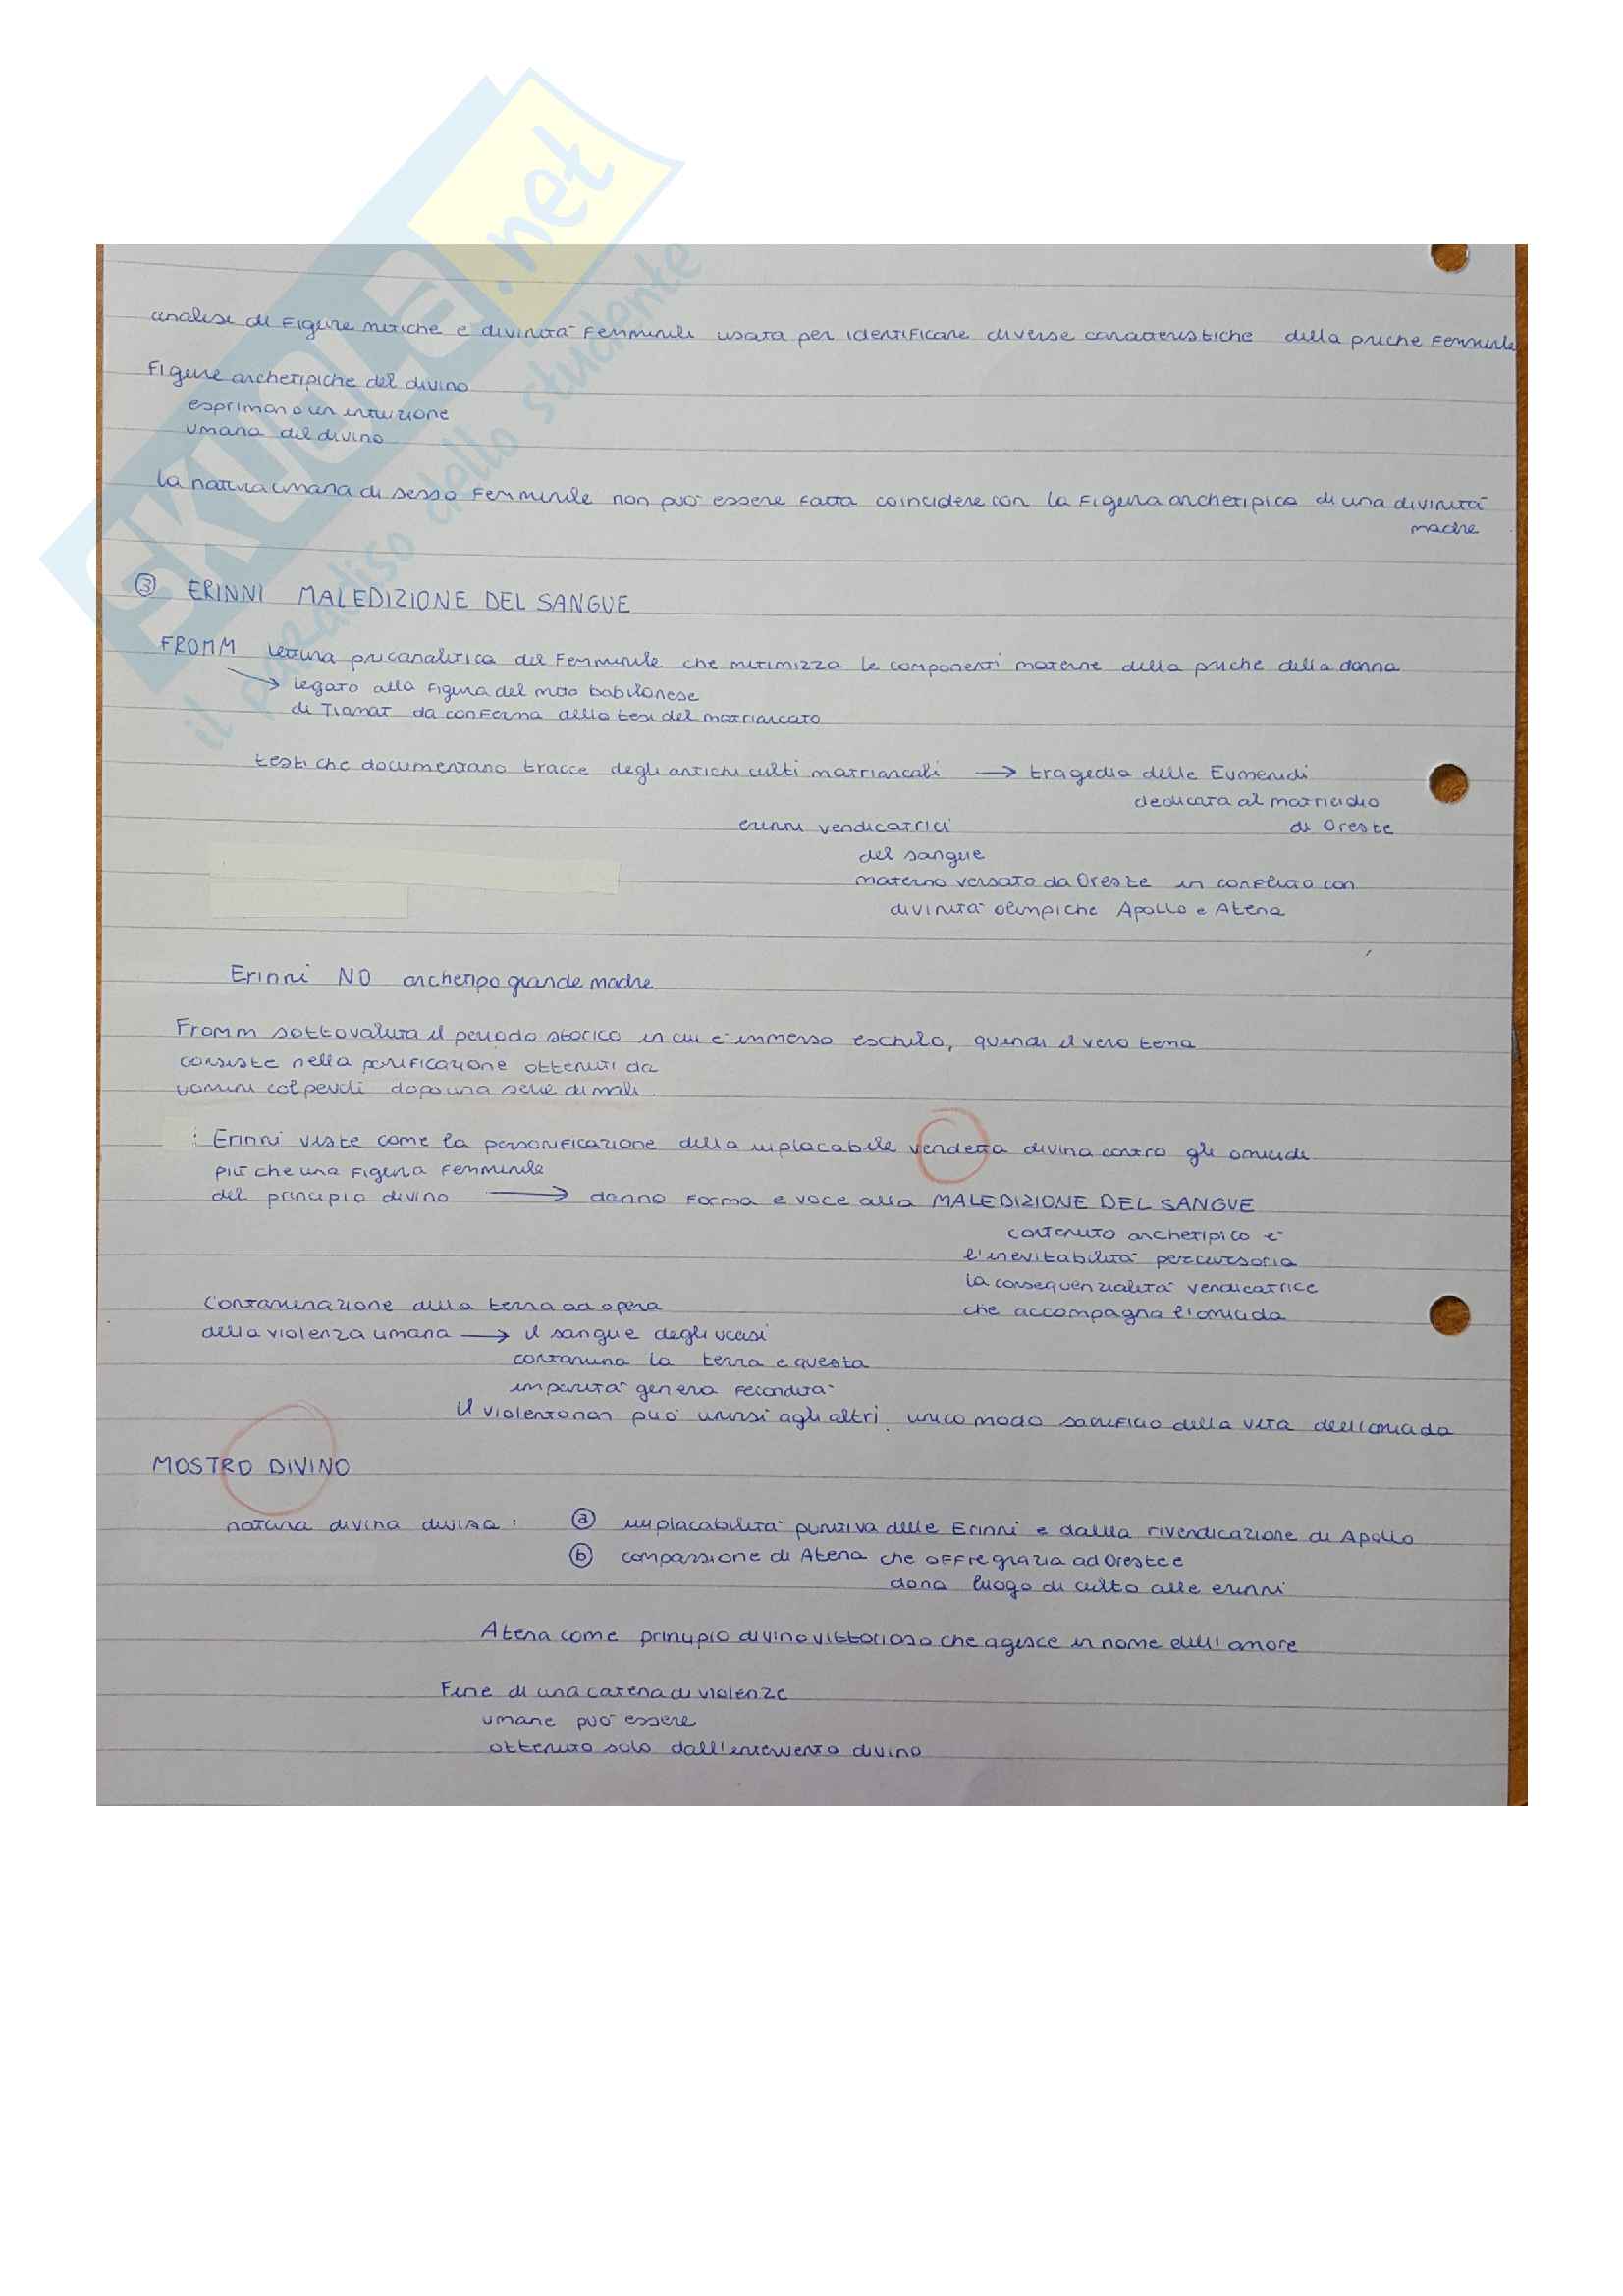 SKUOLA.net
il paradiso dello studente
analisi di Figure mitiche e divinità Femminili usata per identificare diverse caratteristiche della psiche Femminile
Figure archetipiche del divino
esprimono un intuizione
umana del divino
la natura umana di sesso Femminile non può essere fatta coincidere con la Figura archetipica di una divinità
madre
③ ERINNI MALEDIZIONE DEL SANGUE
FROMM lettura psicanalitica del Femminile che mitimizza le componenti materne della psiche della donna
→ legato alla Figura del mito babilonese
di Tiamat da conferma della tesi del matriarcato
testi che documentano tracce degli antichi culti matriarcali → tragedia delle Eumenidi
dedicata al matricidio
di Oreste
erinni vendicatrici
del sangue
materno versato da Oreste in conflitto con
divinità olimpiche Apollo e Atena
Erinni NO archetipo grande madre
Fromm sottovaluta il periodo storico in cui è immerso eschilo, quindi il vero tema
consiste nella purificazione ottenuti da
uomini colpevoli dopo una serie di mali.
: Erinni viste come la personificazione della implacabile vendetta divina contro gli omicidi
più che una Figura Femminile
del principio divino → danno forma e voce alla MALEDIZIONE DEL SANGUE
contenuto archetipico è
l'inevitabilità percursoria
la consequenzialità vendicatrice
che accompagna l'omicida
Contaminazione della terra ad opera
della violenza umana → il sangue degli uccisi
contamina la terra e questa
impurità genera fecondità
il violento non può unirsi agli altri, unico modo sacrificio della vita dell'omicida
MOSTRO DIVINO
natura divina divisa : ⓐ implacabilità punitiva delle Erinni e dalla rivendicazione di Apollo
ⓑ compassione di Atena che offre grazia ad Oreste e
dona luogo di culto alle erinni
Atena come principio divino vittorioso che agisce in nome dell'amore
Fine di una catena di violenze
umane può essere
ottenuto solo dall'intervento divino